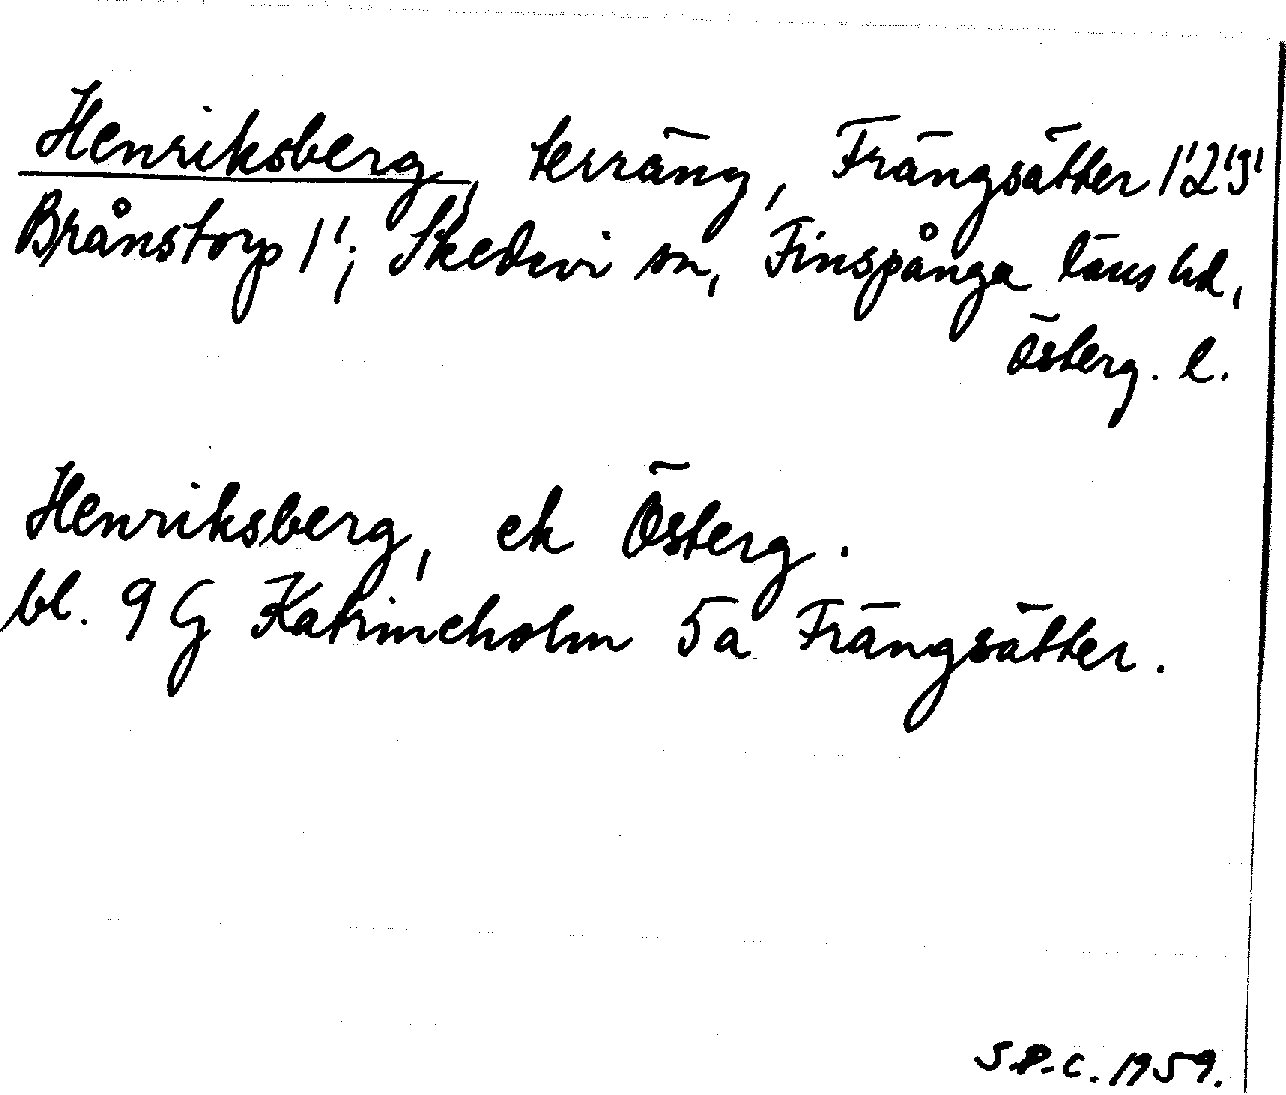 Henriksberg, terräng, Frängsätter 1'2'3'
Brånstorp 1'; Skedevi sn, Finspånga läns hd,
Österg. l.
Henriksberg, ek Österg.
bl. 9 G Katrineholm 5a Frängsätter.
S.P.C. 1959.